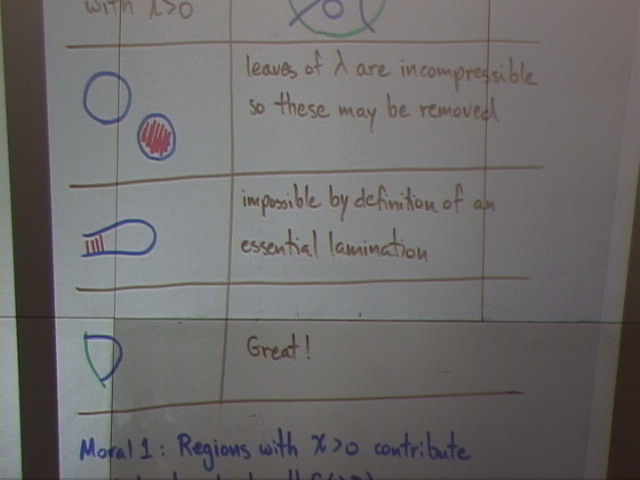 with χ>0
leaves of λ are incompressible
so these may be removed
impossible by definition of an
essential lamination
Great!
Moral 1: Regions with χ>0 contribute